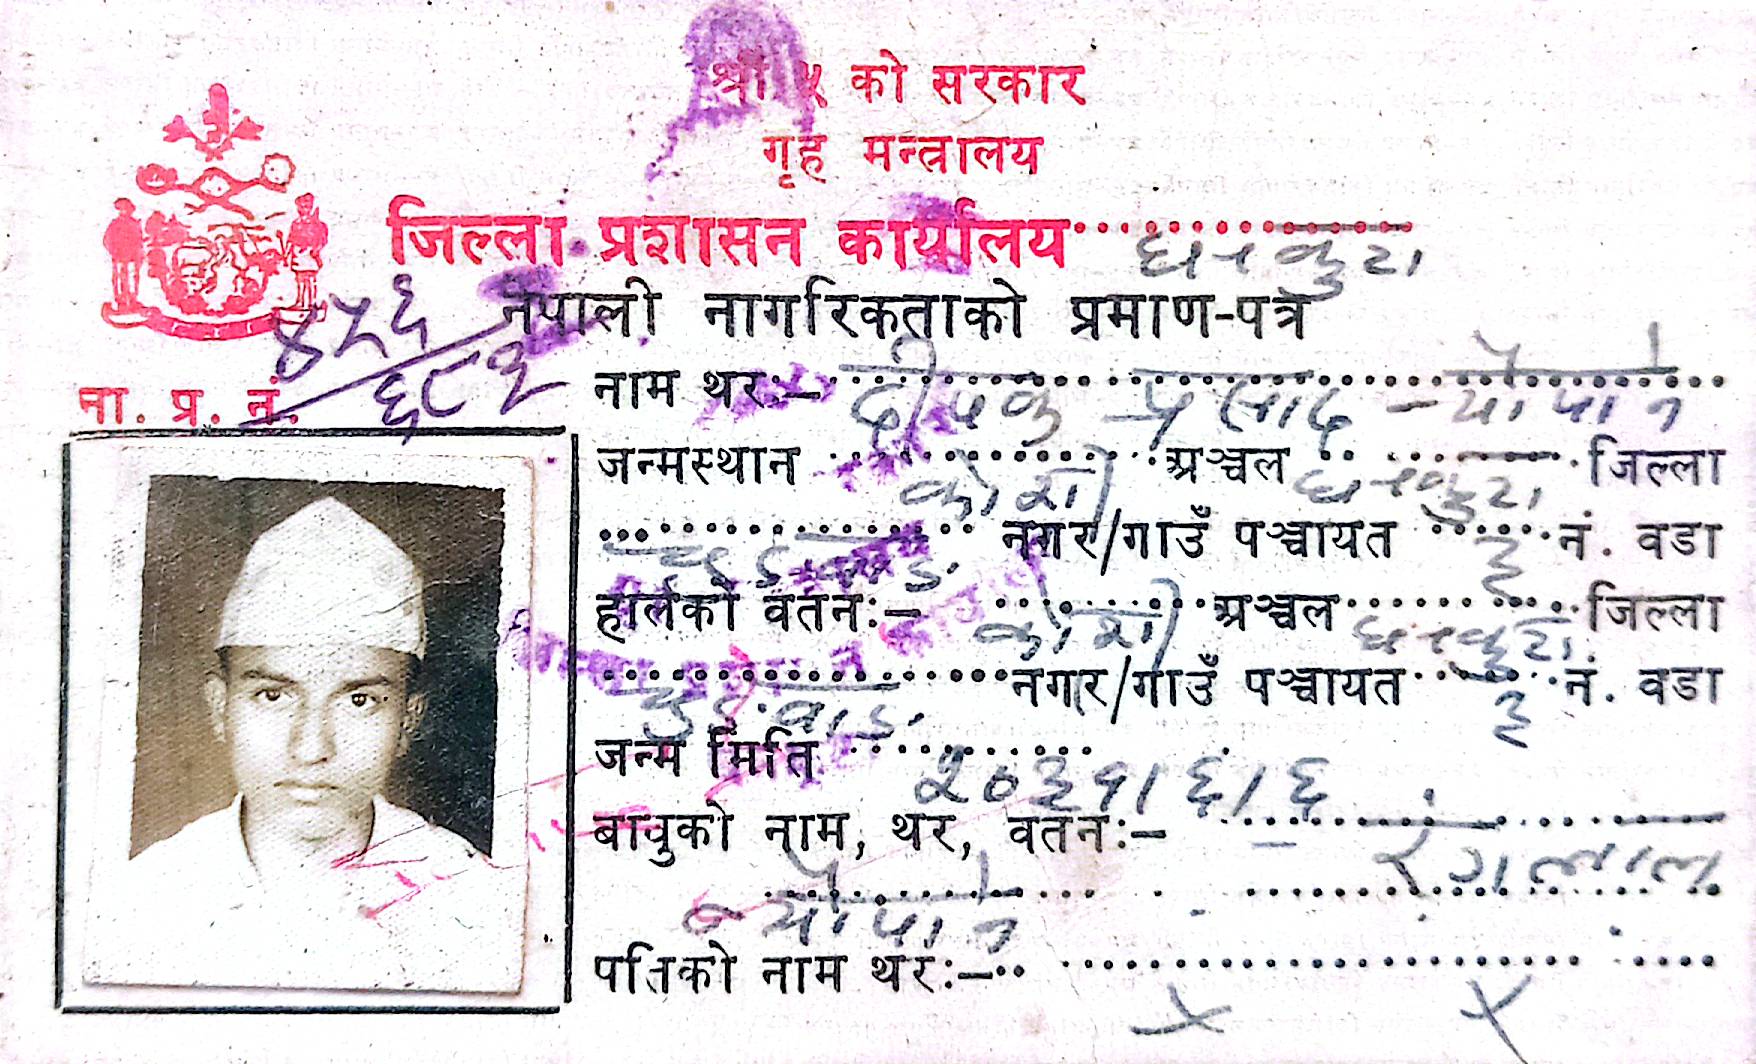 श्री ५ को सरकार
गृह मन्त्रालय
जिल्ला प्रशासन कार्यालय धनकुटा
नेपाली नागरिकताको प्रमाण-पत्र
ना. प्र. नं. ४५६/६८१
नाम थर:- दीपक प्रसाद न्यौपाने
जन्मस्थान कोशी अञ्चल धनकुटा जिल्ला
नगर/गाउँ पञ्चायत ३ नं. वडा
हालको वतन:- कोशी अञ्चल धनकुटा जिल्ला
नगर/गाउँ पञ्चायत ३ नं. वडा
जन्म मिति २०३१।६।६
बाबुको नाम, थर, वतन:- रंगलाल
न्यौपाने
पतिको नाम थर:- x x